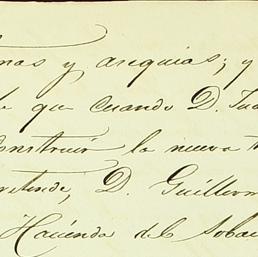 y asequias; y
que cuando D.
construir la nueva
D. Guillerm
Hacienda del Soba